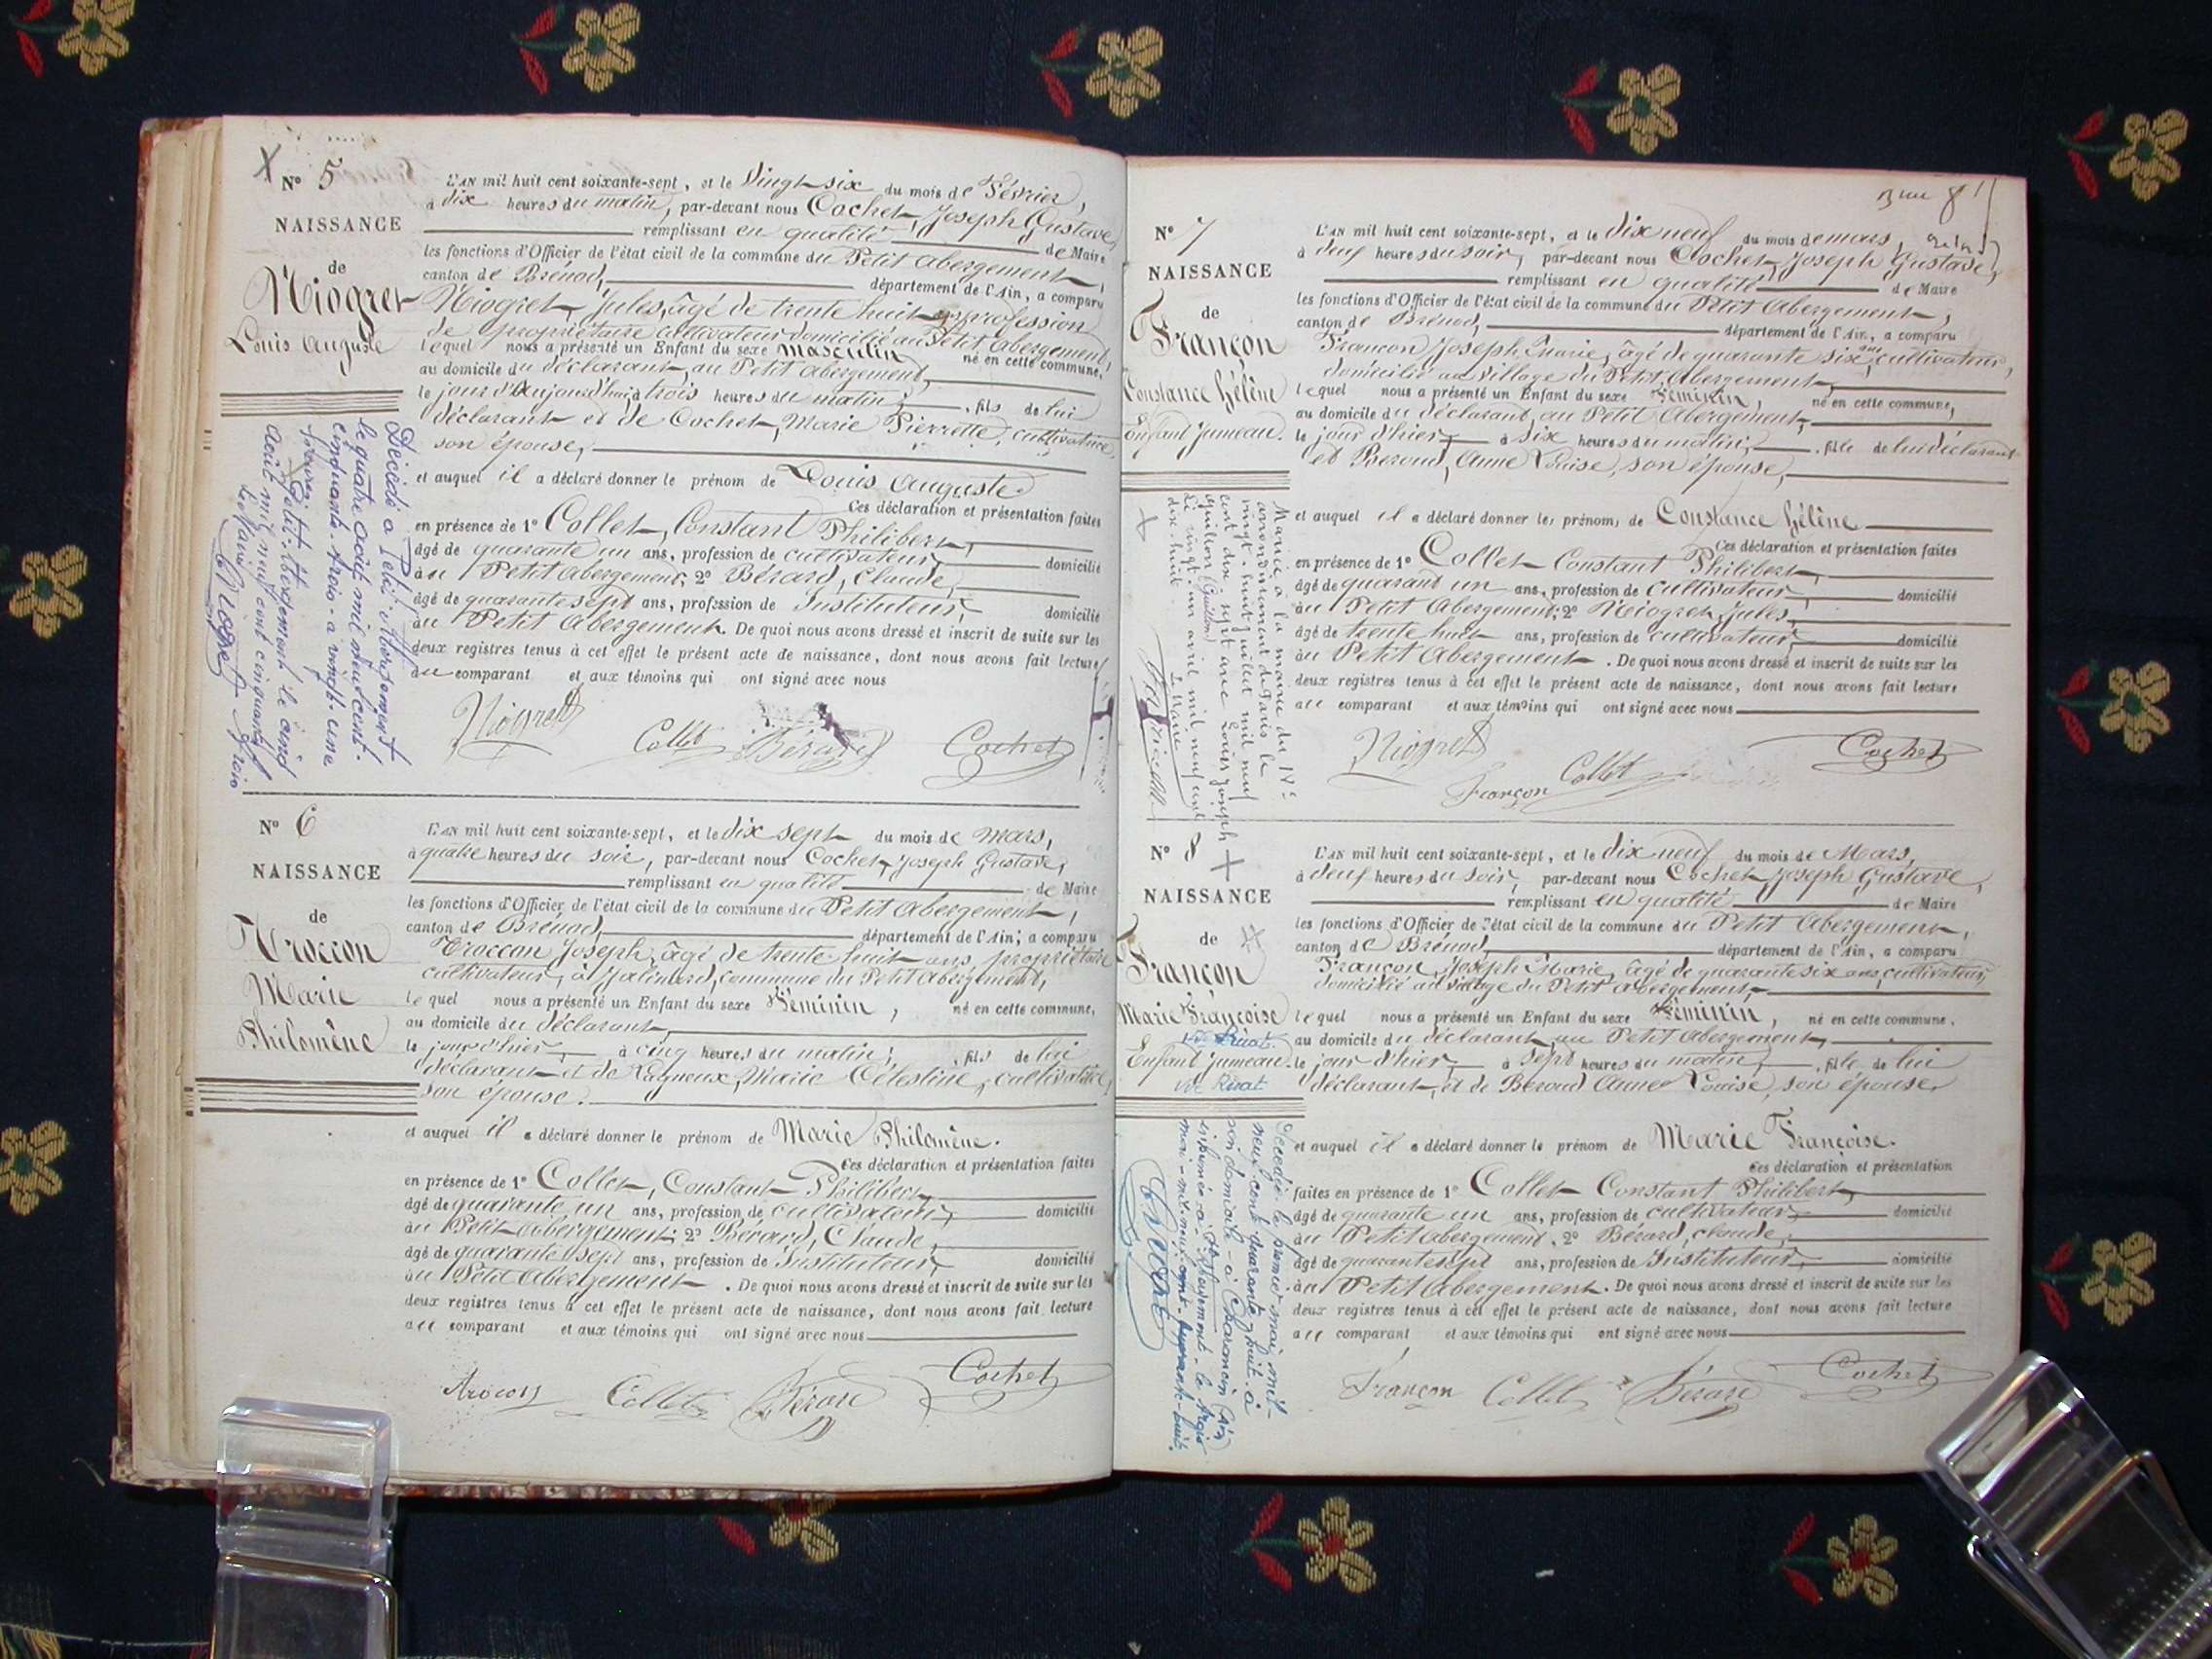 N° 5
NAISSANCE
de
Niogret
Louis Auguste
L'AN mil huit cent soixante-sept, et le Vingt six du mois de Février,
à dix heures du matin, par-devant nous Cochet, Joseph Gustave,
remplissant en qualité de Maire
les fonctions d'Officier de l'état civil de la commune du Petit Abergement,
canton de Brénod, département de l'Ain, a comparu
Niogret, Jules, âgé de trente huit ans profession
de propriétaire cultivateur domicilié au Petit Abergement,
lequel nous a présenté un Enfant du sexe masculin né en cette commune,
au domicile du déclarant, au Petit Abergement,
le jour d'aujourd'hui à trois heures du matin, fils de lui
déclarant et de Cochet, Marie Pierrette, cultivatrice,
son épouse,
et auquel il a déclaré donner le prénom de Louis Auguste.
Ces déclaration et présentation faites
en présence de 1° Collet, Constant Philibert,
âgé de quarante un ans, profession de cultivateur, domicilié
au Petit Abergement, 2° Bérard, Claude,
âgé de quarante sept ans, profession de Instituteur, domicilié
au Petit Abergement. De quoi nous avons dressé et inscrit de suite sur les
deux registres tenus à cet effet le présent acte de naissance, dont nous avons fait lecture
au comparant et aux témoins qui ont signé avec nous
Niogret Collet Bérard Cochet
Décédé à Petit Abergement
le quatre août mil neuf cent
cinquante-trois - à vingt-une
heures
Petit-Abergement le cinq
août mil neuf cent cinquante trois
Le Maire
N° 6
NAISSANCE
de
Troccon
Marie
Philomène
L'AN mil huit cent soixante-sept, et le dix sept du mois de mars,
à quatre heures du soir, par-devant nous Cochet, Joseph Gustave,
remplissant en qualité de Maire
les fonctions d'Officier de l'état civil de la commune du Petit Abergement,
canton de Brénod, département de l'Ain, a comparu
Troccon, Joseph, âgé de trente huit ans, propriétaire
cultivateur, à Jalinard, commune du Petit Abergement,
lequel nous a présenté un Enfant du sexe Féminin, né en cette commune,
au domicile du déclarant,
le jour d'hier, à cinq heures du matin, fils de lui
déclarant et de Marie Célestine, cultivatrice,
son épouse.
et auquel il a déclaré donner le prénom de Marie Philomène.
Ces déclaration et présentation faites
en présence de 1° Collet, Constant Philibert,
âgé de quarante un ans, profession de cultivateur, domicilié
au Petit Abergement; 2° Bérard, Claude,
âgé de quarante sept ans, profession de Instituteur, domicilié
au Petit Abergement. De quoi nous avons dressé et inscrit de suite sur les
deux registres tenus à cet effet le présent acte de naissance, dont nous avons fait lecture
au comparant et aux témoins qui ont signé avec nous
Collet Bérard Cochet
N° 7
NAISSANCE
de
Françon
Constance Hélène
Enfant Jumeau.
L'AN mil huit cent soixante-sept, et le dix neuf du mois de mars,
à deux heures du soir, par-devant nous Cochet, Joseph Gustave,
remplissant en qualité de Maire
les fonctions d'Officier de l'état civil de la commune du Petit Abergement,
canton de Brénod, département de l'Ain, a comparu
Françon Joseph Marie, âgé de quarante six ans, cultivateur,
domicilié au village du Petit Abergement,
lequel nous a présenté un Enfant du sexe Féminin, né en cette commune,
au domicile du déclarant, au Petit Abergement,
le jour d'hier, à six heures du matin, fille de lui déclarant
et Beroud, Anne Louise, son épouse,
et auquel il a déclaré donner les prénoms de Constance Hélène
Ces déclaration et présentation faites
en présence de 1° Collet Constant Philibert,
âgé de quarant un ans, profession de cultivateur, domicilié
au Petit Abergement; 2° Niogret, Jules,
âgé de trente huit ans, profession de cultivateur, domicilié
au Petit Abergement. De quoi nous avons dressé et inscrit de suite sur les
deux registres tenus à cet effet le présent acte de naissance, dont nous avons fait lecture
au comparant et aux témoins qui ont signé avec nous
Niogret Françon Collet Cochet
Mariée à la mairie du
arrondissement de Paris le
vingt-huit juillet mil neuf
cent dix sept avec Louis Joseph
Guillon (Guillon)
Le vingt un avril mil neuf cent
dix-huit Le Maire
N° 8
NAISSANCE
de
Françon
Marie Françoise
Enfant Jumeau.
L'AN mil huit cent soixante-sept, et le dix neuf du mois de Mars,
à deux heures du soir, par-devant nous Cochet, Joseph Gustave,
remplissant en qualité de Maire
les fonctions d'Officier de l'état civil de la commune du Petit Abergement,
canton de Brénod, département de l'Ain, a comparu
Françon, Joseph Marie, âgé de quarante six ans, cultivateur,
domicilié au village du Petit Abergement,
lequel nous a présenté un Enfant du sexe Féminin, né en cette commune,
au domicile du déclarant, au Petit Abergement,
le jour d'hier, à sept heures du matin, fille de lui
déclarant, et de Beroud Anne Louise, son épouse,
et auquel il a déclaré donner le prénom de Marie Françoise.
Ces déclaration et présentation
faites en présence de 1° Collet Constant Philibert,
âgé de quarante un ans, profession de cultivateur, domicilié
au Petit Abergement, 2° Bérard, Claude,
âgé de quarante sept ans, profession de Instituteur, domicilié
au Petit Abergement. De quoi nous avons dressé et inscrit de suite sur les
deux registres tenus à cet effet le présent acte de naissance, dont nous avons fait lecture
au comparant et aux témoins qui ont signé avec nous
Françon Collet Bérard Cochet
Décédée le premier mai mil-
neuf-cent-quarante-huit-à
son domicile-à Charancin (Ain)
inhumée-à-P-Abergement-le-trois
mai-mil-neuf-cent-quarante-huit.